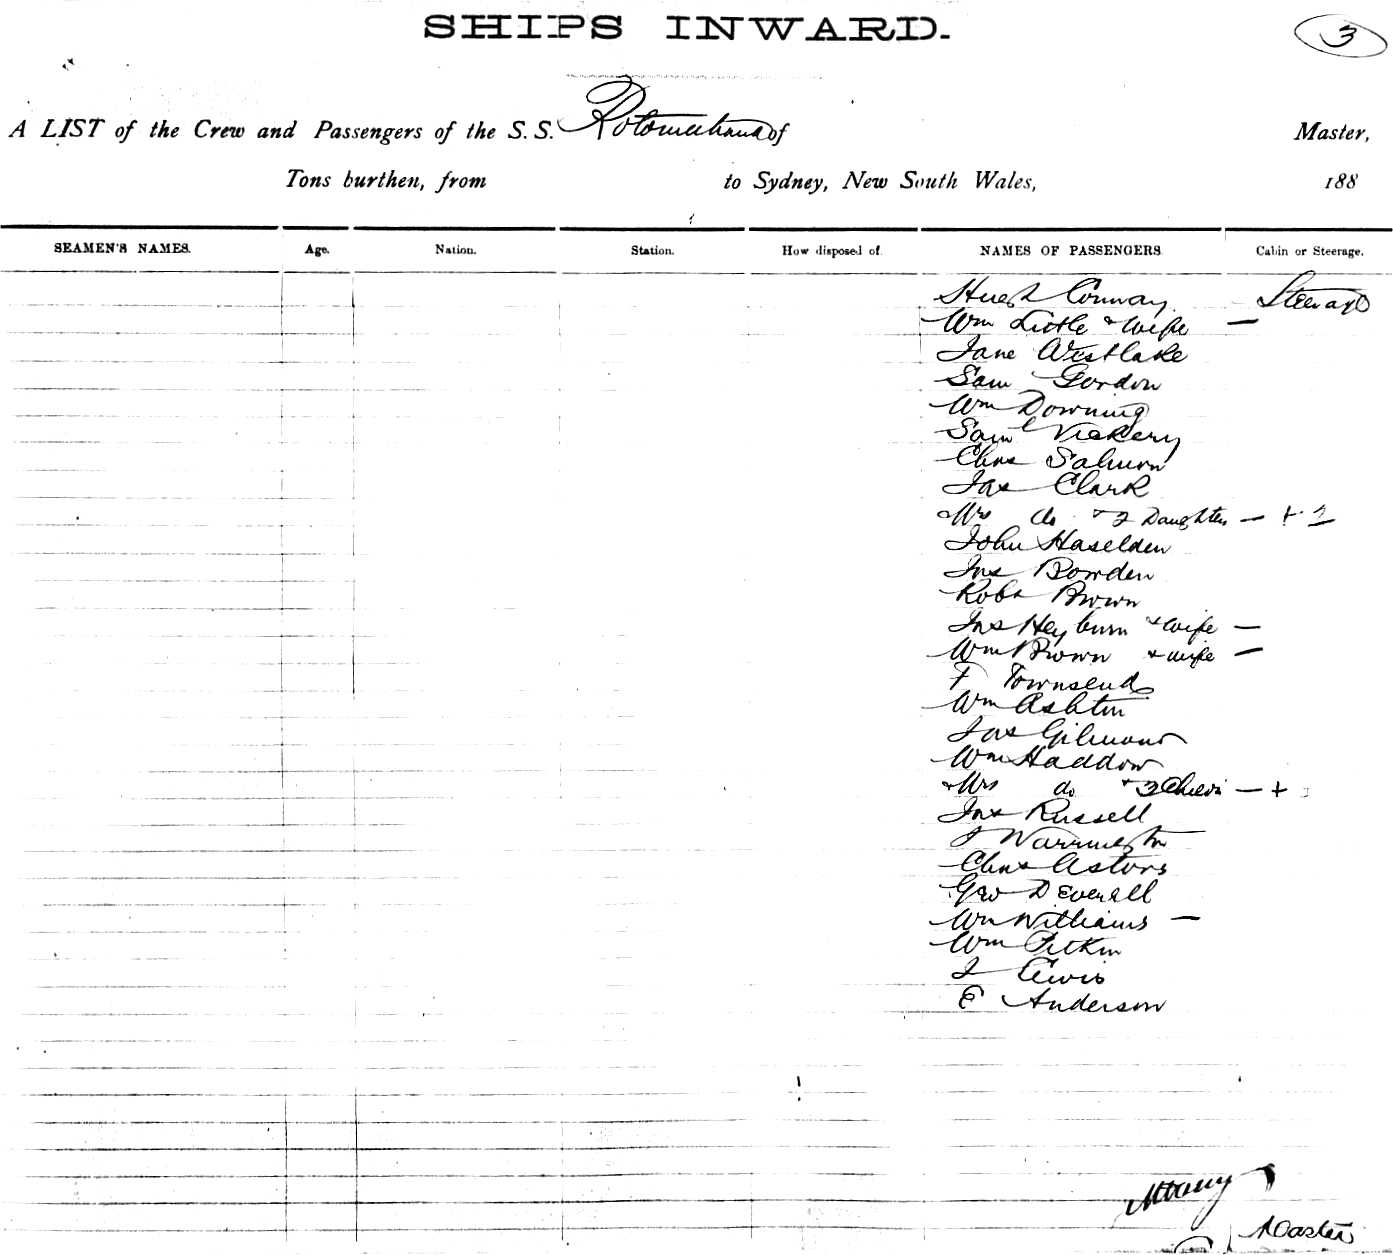 SHIPS INWARD.
3
A LIST of the Crew and Passengers of the S.S. Rotomahana of Master,
Tons burthen, from to Sydney, New South Wales, 188
SEAMEN'S NAMES. Age. Nation. Station. How disposed of. NAMES OF PASSENGERS Cabin or Steerage.
Hugh Conway Steerage
Wm Little & Wife —
Jane Westlake
Sam Gordon
Wm Downing
Saml Vickery
Chas Salmon
Jas Clark
Mrs do & 2 Daughters — + 2
John Haselden
Jno Bowden
Robt Brown
Jas Heyburn & Wife —
Wm Brown & wife —
F Townsend
Wm Ashton
Jas Gilmour
Wm Haddow
Mrs do & 3 — + 3
Jas Russell
J Warrington
Chas Astors
Geo Deverell
Wm Williams —
Wm Pitkin
J Lewis
E Anderson
Master